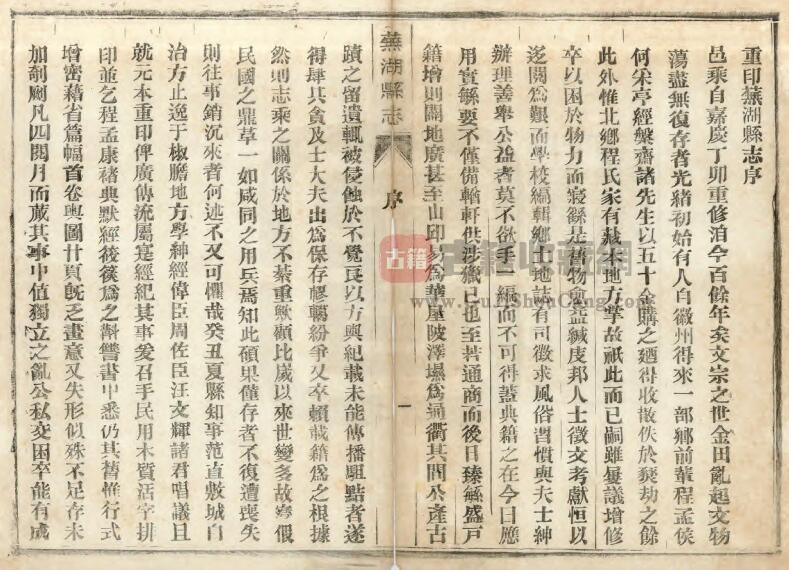 重印蕪湖縣志序
邑乘自嘉慶丁卯重修洎今百餘年矣文宗之世金田亂起文物
蕩盡無復存者光緒初始有人自徽州得來一部鄉前輩程孟侯
何采亭經槃齋諸先生以五十金購之廼得收散佚於褻劫之餘
此外惟北鄉程氏家有藏本地方掌故祇此而已嗣雖屢議增修
卒以困於物力而寢緜是舊物興益緘度邦人士徵文考獻恒以
迻閱為艱而學校編輯鄉土地誌有司徵求風俗習慣與夫士紳
辦理善舉公益者莫不欲手一編而不可得蓋典籍之在今日應
用實緐要不僅備輶軒供涉獵已也至若通商而後日臻緐盛戶
籍增則闢地廣甚至山邱易為華屋陂澤壩為通衢其間公產古
蕪湖縣志
序
一
蹟之留遺輒被侵蝕於不覺民以方輿紀載未能傳播駔黠者遂
得肆其貪及士大夫出為保存轇轕紛爭又卒賴載籍為之根據
然則志乘之關係於地方不綦重歟顧比歲以來世變多故寧假
民國之鼎革一如咸同之用兵焉知此碩果僅存者不復遭喪失
則往事銷沉來者何述不又可懼哉癸丑夏縣知事范直敷城自
治方止逸于椒膽地方學紳經偉臣周佐臣汪文輝諸君唱議且
就元本重印俾廣傳流屬寔經紀其事爰召手民用木質活字排
印並乞程孟康褚典默經筱篯為之斠讐書中悉仍其舊惟行式
增密藉省篇幅首卷輿圖廿頁既乏畫意又失形似殊不足存未
加剞劂凡四閱月而蕆其事中值獨立之亂公私交困卒能有成
古籍
古籍收藏網
www.GuJiShouCang.com